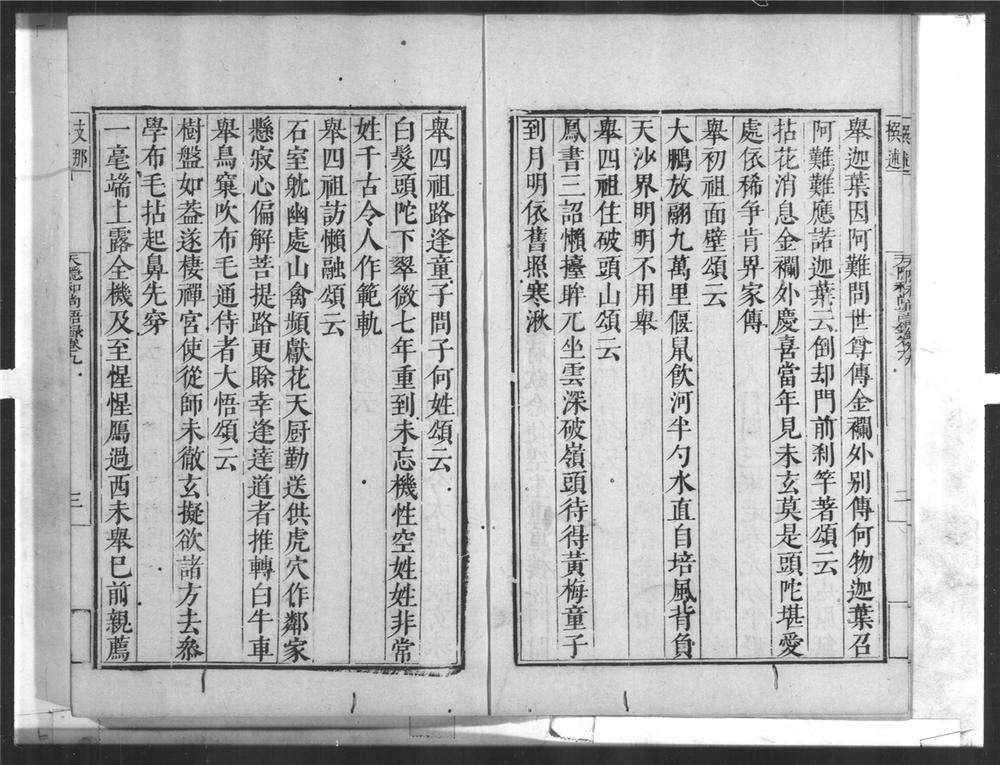 舉迦葉因阿難問世尊傳金襴外别傳何物迦葉召
阿難難應諾迦葉云倒却門前刹竿著頌云
拈花消息金襴外慶喜當年見未玄莫是頭陀堪愛
處依稀争肯界家傳
舉初祖面壁頌云
大鵬放翮九萬里偃鼠飲河半勺水直自培風背負
天沙界明明不用舉
舉四祖住破頭山頌云
鳳書三詔懶擡眸兀坐雲深破嶺頭待得黃梅童子
到月明依舊照寒湫
二
舉四祖路逢童子問子何姓頌云
白髮頭陀下翠微七年重到未忘機性空姓姓非常
姓千古令人作範軌
舉四祖訪懶融頌云
石室躭幽處山禽頻獻花天厨勤送供虎穴作鄰家
懸寂心偏解菩提路更賒幸逢達道者推轉白牛車
舉鳥窠吹布毛通侍者大悟頌云
樹盤如葢遂棲禪宮使從師未徹玄擬欲諸方去叅
學布毛拈起鼻先穿
一毫端上露全機及至惺惺鴈過西未舉巳前親薦
支那
天隱和尚語録卷九
三